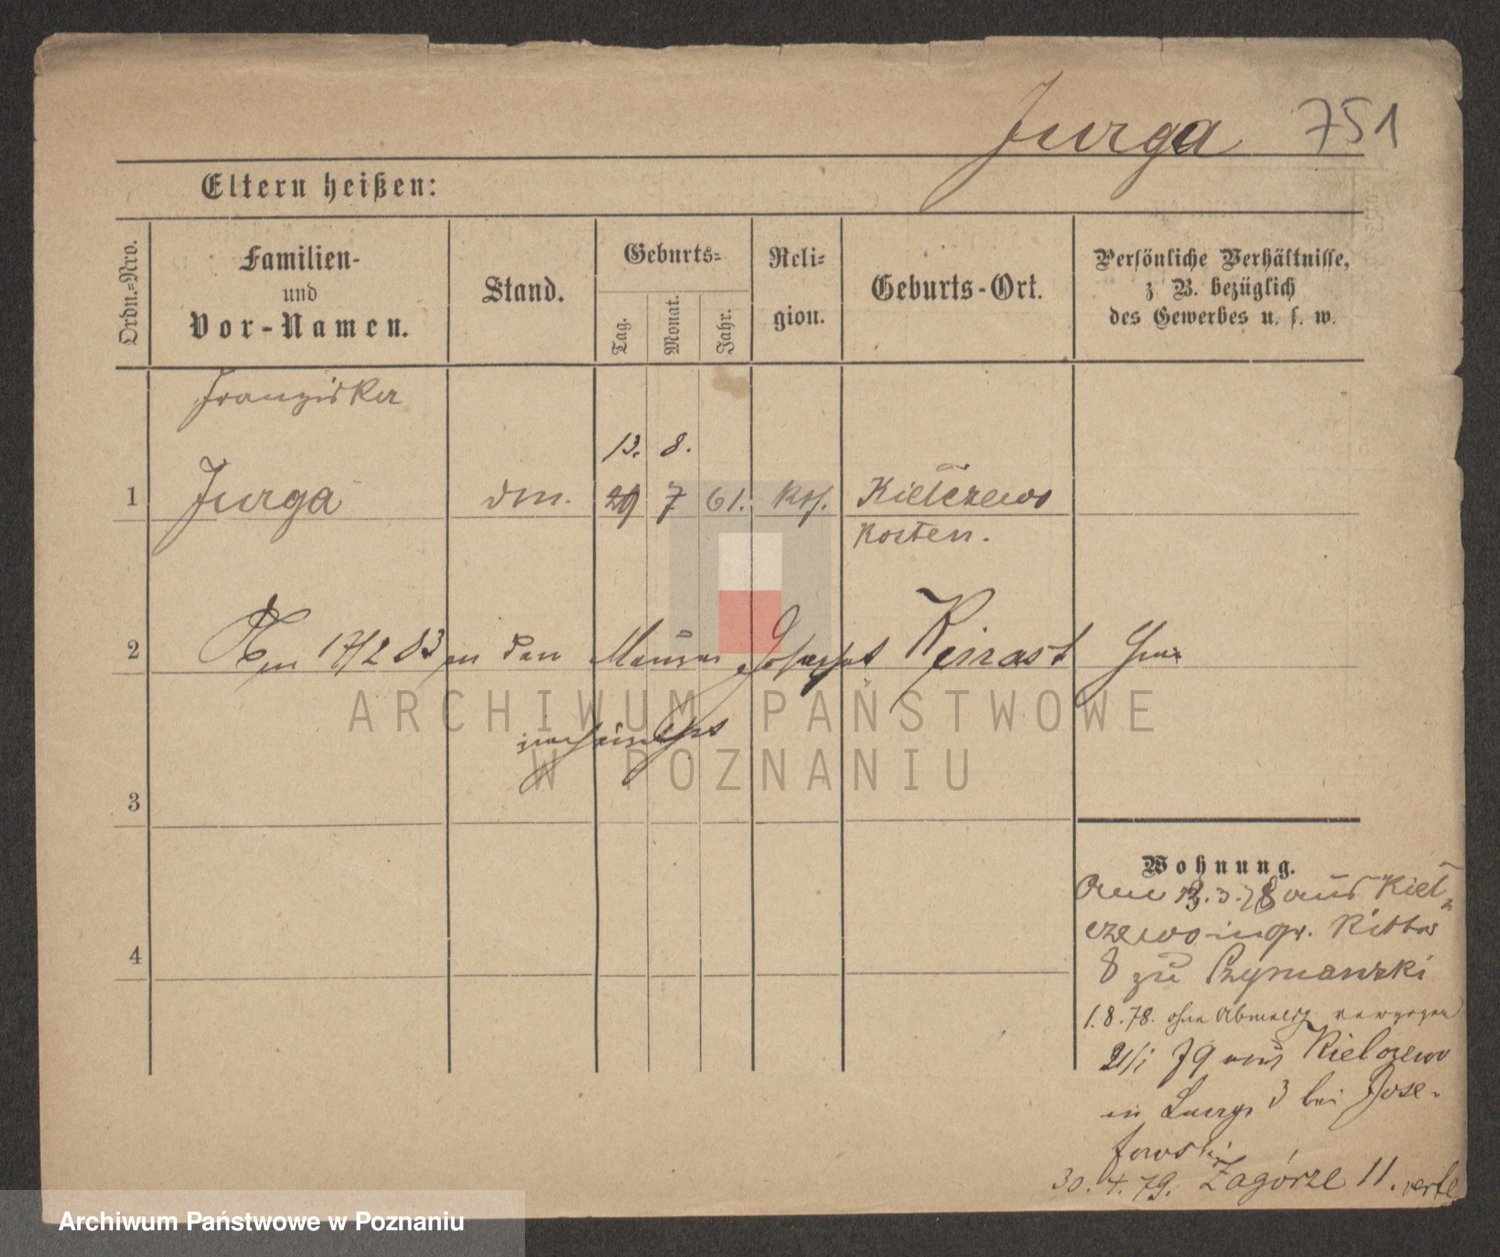 Jurga 751
Eltern heißen:
Ordn.-Nro.
Familien-
und
Vor-Namen.
Stand.
Geburts-
Tag.
Monat.
Jahr.
Reli-
gion.
Geburts-Ort.
Persönliche Verhältnisse,
z B. bezüglich
des Gewerbes u. s. w.
Franziska
13. 8.
1 Jurga 29 7 61. Kath. Kielczewo
Kosten.
2 17/2 83 an den Maurer Joseph
3
4
Wohnung.
Am 13.3.78 aus Kiel-
czewo in gr. Ritter
8 zu Szymanski
1.8.78. ohne Abmeldg. verzogen
21/1 79 aus Kielczewo
in 3 bei Jose-
fowski
30.4.79. Zagórze 11. verte
ARCHIWUM PAŃSTWOWE
W POZNANIU
Archiwum Państwowe w Poznaniu